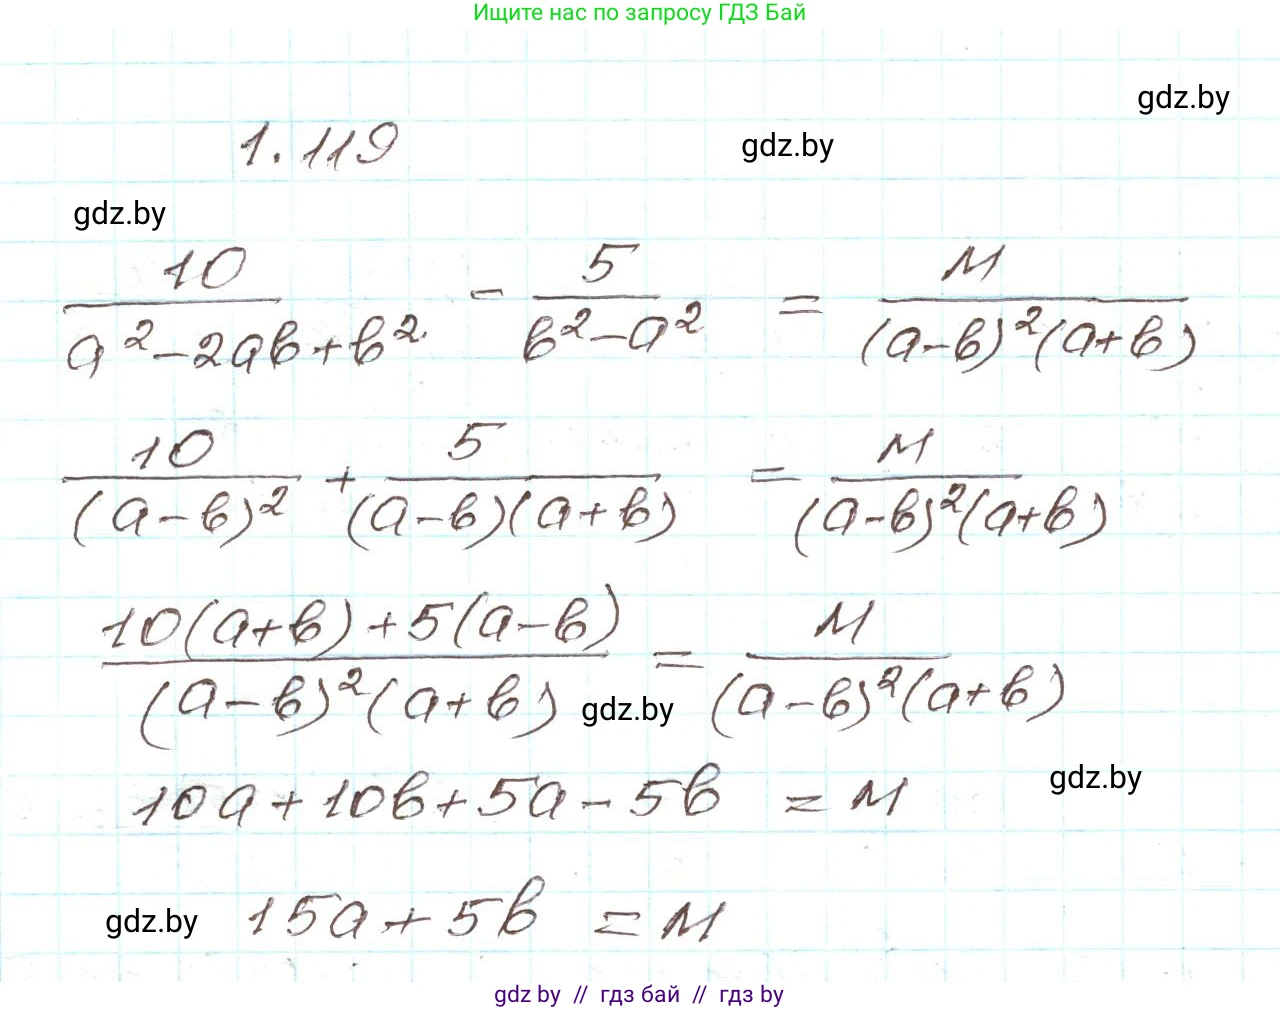 Ищите нас по запросу ГДЗ Бай
gdz.by
1.119
gdz.by
gdz.by
10/(a²-2ab+b²) - 5/(b²-a²) = M/((a-b)²(a+b))
10/(a-b)² + 5/((a-b)(a+b)) = M/((a-b)²(a+b))
(10(a+b)+5(a-b))/((a-b)²(a+b)) = M/((a-b)²(a+b))
gdz.by
gdz.by
10a+10b+5a-5b = M
gdz.by
15a+5b = M
gdz by // гдз бай // гдз by